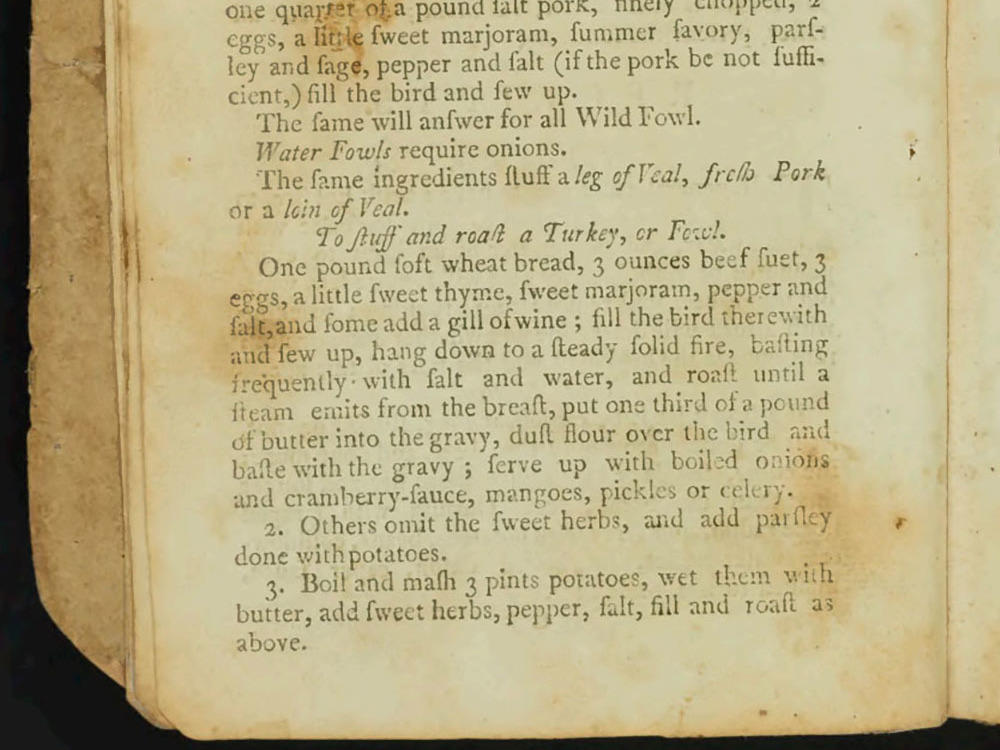 one quarter of a pound ſalt pork, finely chopped, 2
eggs, a little ſweet marjoram, ſummer ſavory, parſ-
ley and ſage, pepper and ſalt (if the pork be not ſuffi-
cient,) fill the bird and ſew up.
The ſame will anſwer for all Wild Fowl.
Water Fowls require onions.
The ſame ingredients ſtuff a leg of Veal, freſh Pork
or a loin of Veal.
To ſtuff and roaſt a Turkey, or Fowl.
One pound ſoft wheat bread, 3 ounces beef ſuet, 3
eggs, a little ſweet thyme, ſweet marjoram, pepper and
ſalt, and ſome add a gill of wine ; fill the bird therewith
and ſew up, hang down to a ſteady ſolid fire, baſting
frequently with ſalt and water, and roaſt until a
ſteam emits from the breaſt, put one third of a pound
of butter into the gravy, duſt flour over the bird and
baſte with the gravy ; ſerve up with boiled onions
and cramberry-ſauce, mangoes, pickles or celery.
2. Others omit the ſweet herbs, and add parſley
done with potatoes.
3. Boil and maſh 3 pints potatoes, wet them with
butter, add ſweet herbs, pepper, ſalt, fill and roaſt as
above.